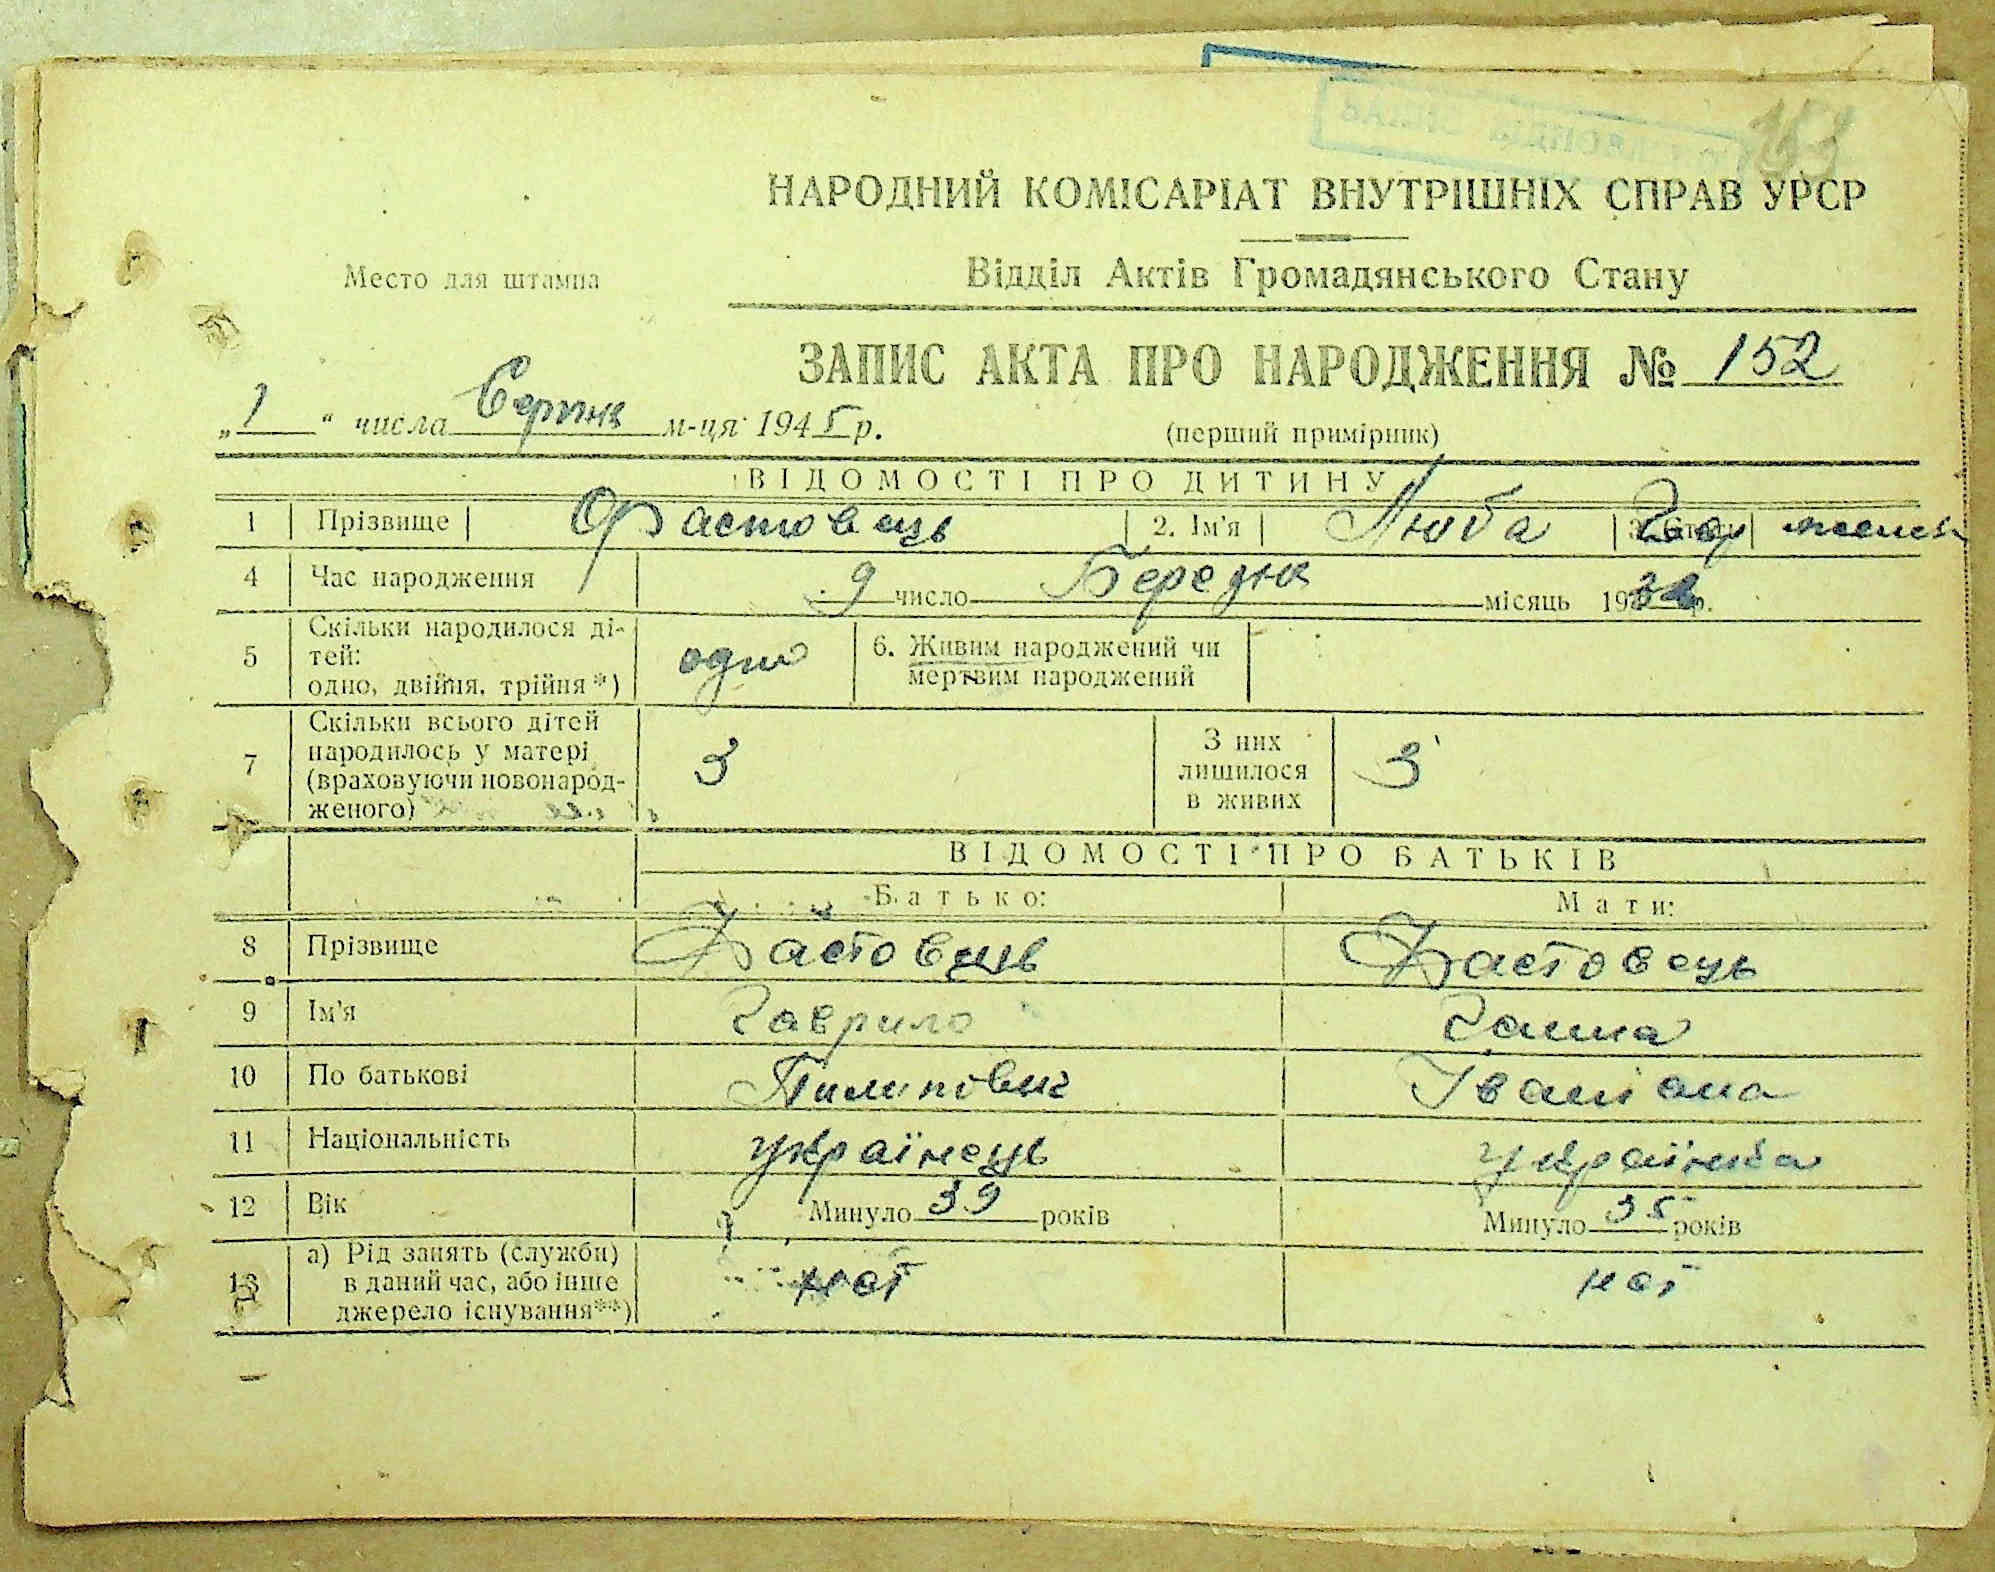 153
НАРОДНИЙ КОМІСАРІАТ ВНУТРІШНІХ СПРАВ УРСР
Место для штампа
Відділ Актів Громадянського Стану
ЗАПИС АКТА ПРО НАРОДЖЕННЯ № 152
„1“ числа Серпня м-ця 1945 р.
(перший примірник)
ВІДОМОСТІ ПРО ДИТИНУ
1 Прізвище Фастовець 2. Ім'я Люба Гавр
4 Час народження 9 число Березня місяць 193 р.
5 Скільки народилося ді-
тей:
одно, двійня, трійня*) одно 6. Живим народжений чи
мертвим народжений
7 Скільки всього дітей
народилось у матері
(враховуючи новонарод-
женого) 3 З них
лишилося
в живих 3
ВІДОМОСТІ ПРО БАТЬКІВ
Батько: Мати:
8 Прізвище Фастовець Фастовець
9 Ім'я Гаврило Ганна
10 По батькові Пилипович
11 Національність українець українка
12 Вік Минуло 39 років Минуло 35 років
13 а) Рід занять (служби)
в даний час, або інше
джерело існування**)